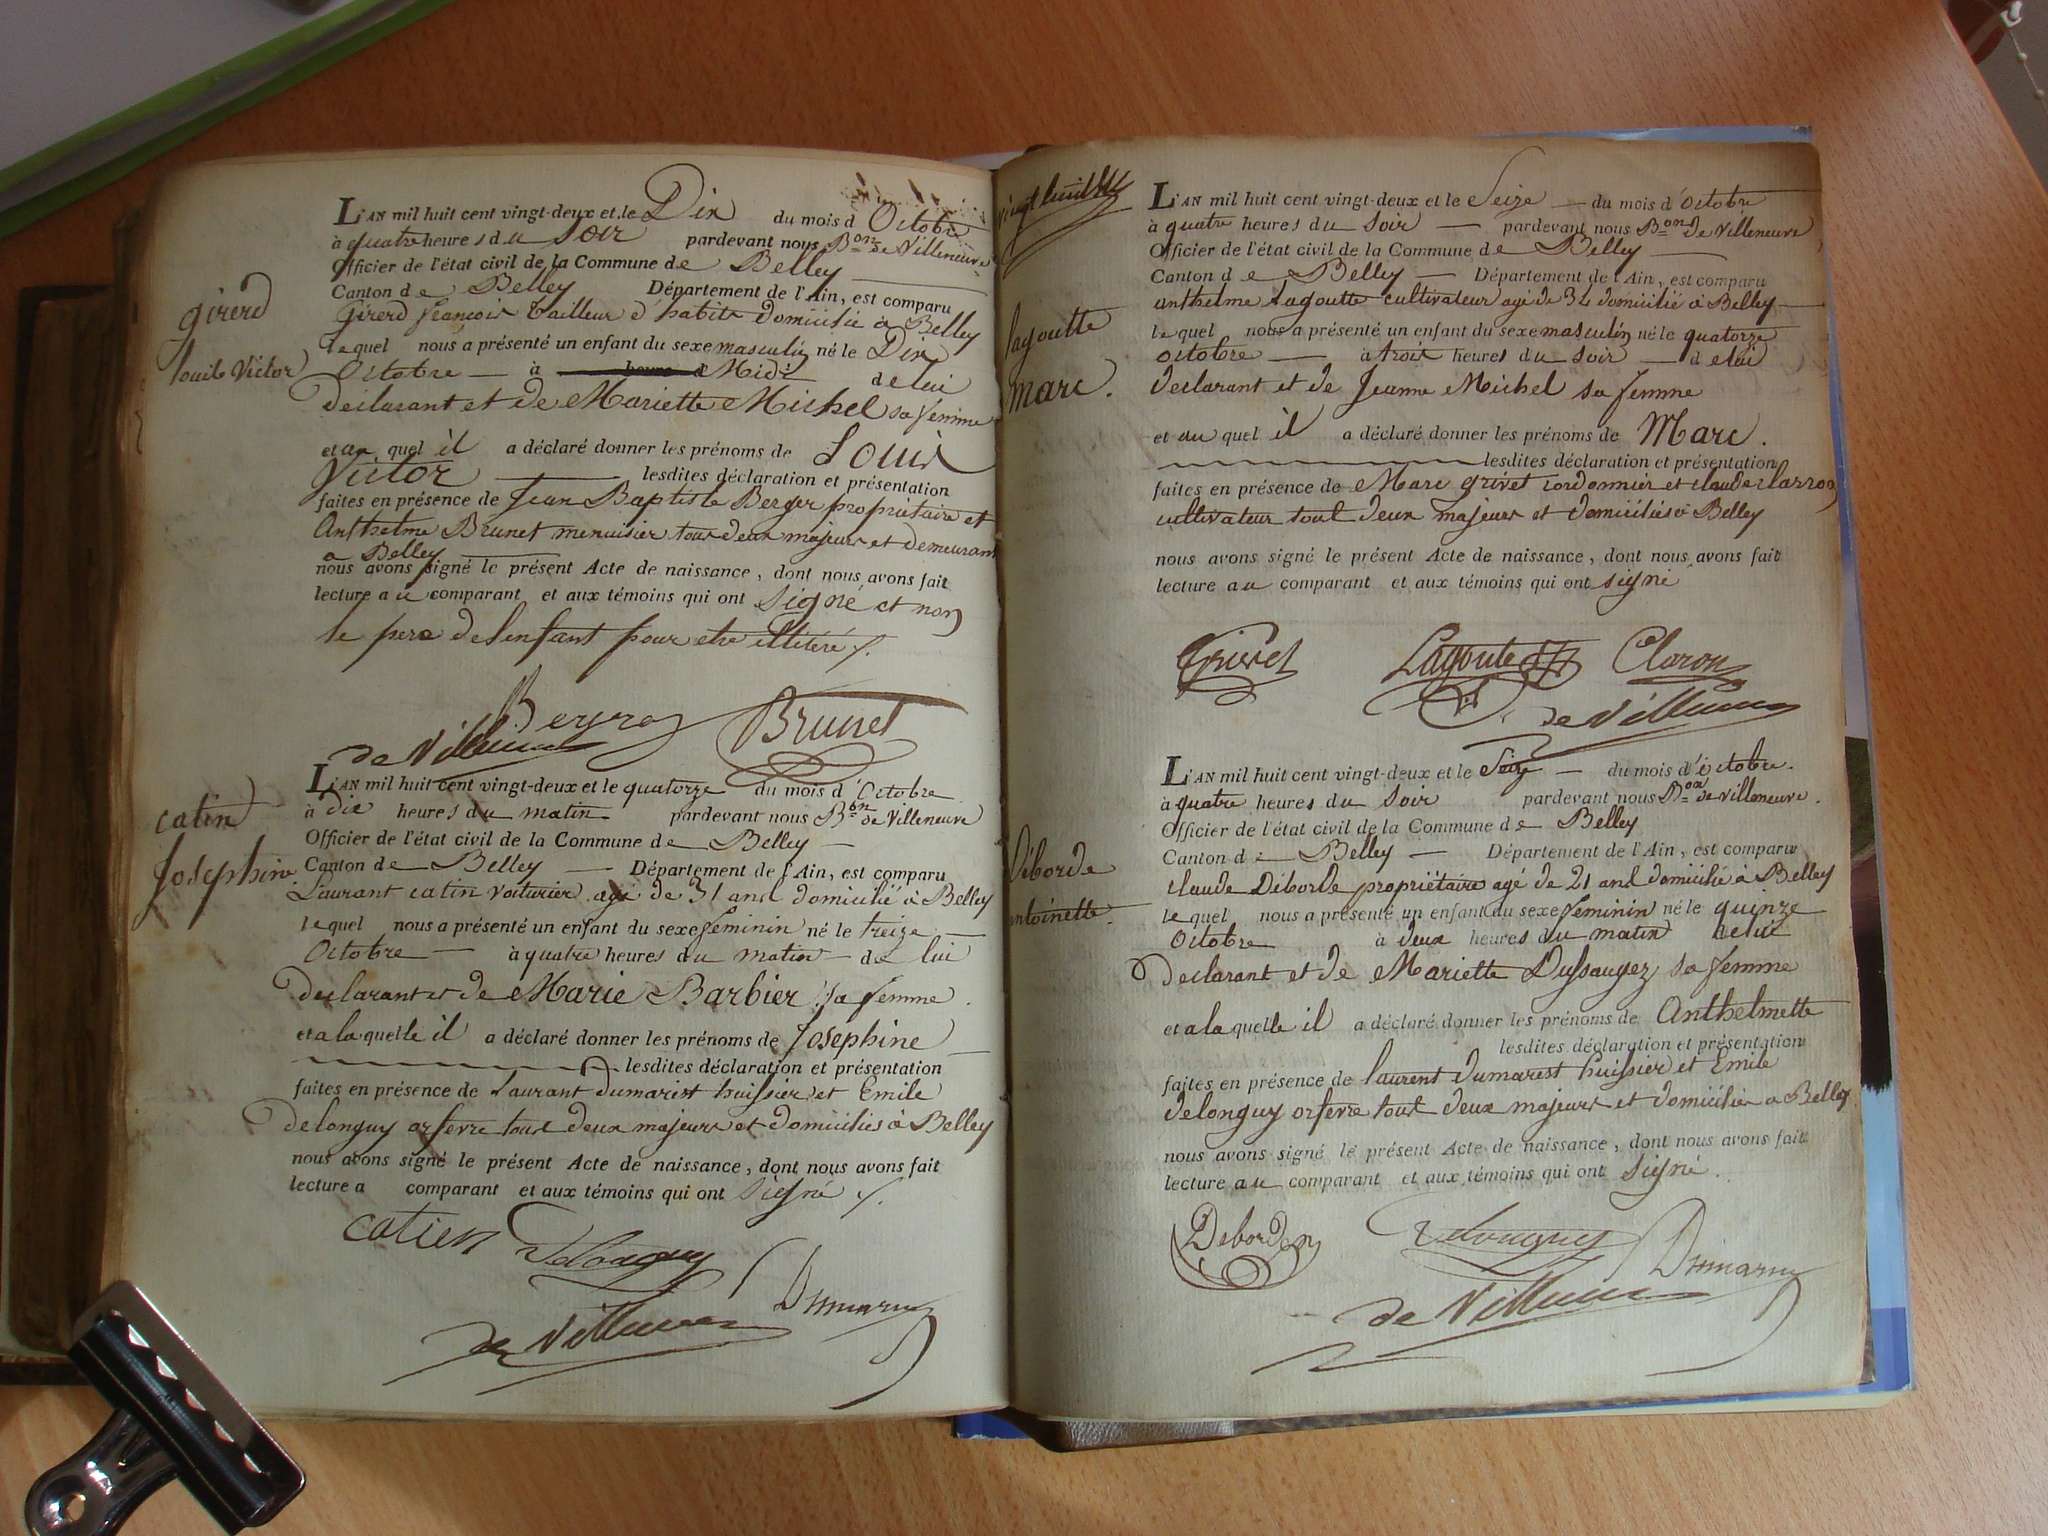 L'AN mil huit cent vingt-deux et le Dix du mois d'Octobre
à quatre heures du soir pardevant nous Bon de Villeneuve
Officier de l'état civil de la Commune de Belley
Canton de Belley Département de l'Ain, est comparu
girerd
Girerd françois tailleur d'habits domicilié à Belley
lequel nous a présenté un enfant du sexe masculin né le Dix
louis Victor
Octobre à Midi de lui
declarant et de Mariette Michel sa femme
et au quel il a déclaré donner les prénoms de Louis
Victor lesdites déclaration et présentation
faites en présence de Jean Baptiste Berger propriétaire et
Anthelme Brunet menuisier tous deux majeurs et demeurant
a Belley
nous avons signé le présent Acte de naissance, dont nous avons fait
lecture au comparant et aux témoins qui ont signé et non
le pere de l'enfant pour etre illitéré /.
Berger Brunet
de Villeneuve
L'AN mil huit cent vingt-deux et le quatorze du mois d'Octobre
catin
à dix heures du matin pardevant nous Bon de Villeneuve
Officier de l'état civil de la Commune de Belley
Josephine
Canton de Belley Département de l'Ain, est comparu
Laurant catin voiturier agé de 31 ans domicilié à Belley
lequel nous a présenté un enfant du sexe feminin né le treize
Octobre à quatre heures du matin de lui
declarant et de Marie Barbier sa femme.
et a laquelle il a déclaré donner les prénoms de Josephine
lesdites déclaration et présentation
faites en présence de Laurant dumarest huissier et Emile
delonguy orfevre tous deux majeurs et domiciliés à Belley
nous avons signé le présent Acte de naissance, dont nous avons fait
lecture a comparant et aux témoins qui ont signé /.
catien Delonguy
Dumarest
de Villeneuve
vingt huit
L'AN mil huit cent vingt-deux et le Seize du mois d'Octobre
à quatre heures du soir pardevant nous Bon de Villeneuve
Officier de l'état civil de la Commune de Belley
Canton de Belley Département de l'Ain, est comparu
anthelme Lagoutte cultivateur agé de 34 domicilié à Belley
lagoutte
lequel nous a présenté un enfant du sexe masculin né le quatorze
octobre à trois heures du soir de lui
marc.
declarant et de Jeanne Michel sa femme
et au quel il a déclaré donner les prénoms de Marc.
lesdites déclaration et présentation
faites en présence de Marc grivet cordonnier et claude clarron
cultivateur tous deux majeurs et domiciliés à Belley
nous avons signé le présent Acte de naissance, dont nous avons fait
lecture au comparant et aux témoins qui ont signé
Grivet Lagoute Claron
de Villeneuve
L'AN mil huit cent vingt-deux et le Seize du mois d'octobre.
à quatre heures du soir pardevant nous Bon de Villeneuve.
Officier de l'état civil de la Commune de Belley
Déborde
Canton de Belley Département de l'Ain, est comparu
claude Déborde propriétaire agé de 21 ans domicilié à Belley
ntoinette.
lequel nous a présenté un enfant du sexe feminin né le quinze
Octobre à deux heures du matin de lui
declarant et de Mariette Dussaugez sa femme
et a laquelle il a déclaré donner les prénoms de Anthelmette
lesdites déclaration et présentation
faites en présence de laurent dumarest huissier et Emile
delonguy orfevre tous deux majeurs et domiciliés a Belley
nous avons signé le présent Acte de naissance, dont nous avons fait
lecture au comparant et aux témoins qui ont signé.
Deborde Delonguy Dumarest
de Villeneuve